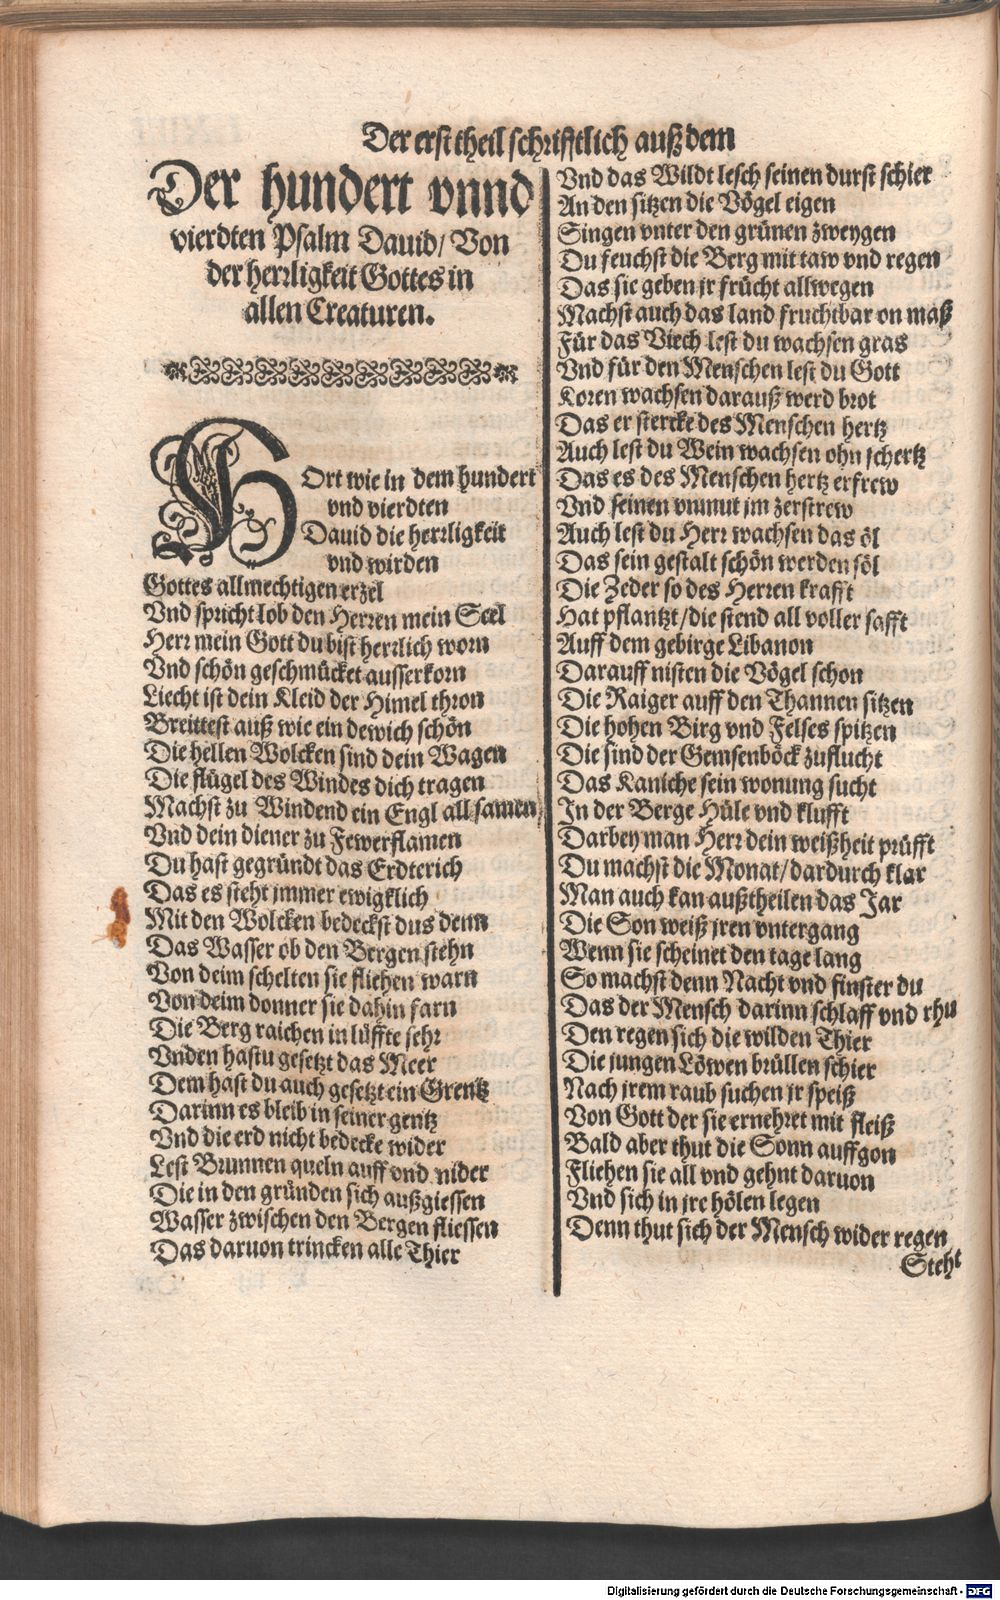 Der erst theil schrifftlich auß dem
Der hundert vnnd
vierdten Psalm Dauid/ Von
der herrligkeit Gottes in
allen Creaturen.
HOrt wie in dem hundert
vnd vierdten
Dauid die herrligkeit
vnd wirden
Gottes allmechtigen erzel
Vnd spricht lob den Herren mein Seel
Herr mein Gott du bist herrlich worn
Vnd schön geschmücket ausserkorn
Liecht ist dein Kleid der Himel thron
Breittest auß wie ein dewich schön
Die hellen Wolcken sind dein Wagen
Die flügel des Windes dich tragen
Machst zu Windend ein Engl all samen
Vnd dein diener zu Fewerflamen
Du hast gegründt das Erdterich
Das es steht jmmer ewigklich
Mit den Wolcken bedeckst dus denn
Das Wasser ob den Bergen stehn
Von deim schelten sie fliehen warn
Von deim donner sie dahin farn
Die Berg raichen in lüffte sehr
Vnden hastu gesetzt das Meer
Dem hast du auch gesetzt ein Grentz
Darinn es bleib in seiner gentz
Vnd die erd nicht bedecke wider
Lest Brunnen queln auff vnd nider
Die in den gründen sich außgiessen
Wasser zwischen den Bergen fliessen
Das daruon trincken alle Thier
Vnd das Wildt lesch seinen durst schier
An den sitzen die Vögel eigen
Singen vnter den grünen zweygen
Du feuchst die Berg mit taw vnd regen
Das sie geben jr frücht allwegen
Machst auch das land fruchtbar on maß
Für das Viech lest du wachsen gras
Vnd für den Menschen lest du Gott
Koren wachsen darauß werd brot
Das er stercke des Menschen hertz
Auch lest du Wein wachsen ohn schertz
Das es des Menschen hertz erfrew
Vnd seinen vnmut jm zerstrew
Auch lest du Herr wachsen das öl
Das sein gestalt schön werden söl
Die Zeder so des Herren krafft
Hat pflantzt/die stend all voller safft
Auff dem gebirge Libanon
Darauff nisten die Vögel schon
Die Raiger auff den Thannen sitzen
Die hohen Birg vnd Felses spitzen
Die sind der Gemsenböck zuflucht
Das Kaniche sein wonung sucht
In der Berge Hüle vnd klufft
Darbey man Herr dein weißheit prüfft
Du machst die Monat/dardurch klar
Man auch kan außtheilen das Jar
Die Son weiß jren vntergang
Wenn sie scheinet den tage lang
So machst denn Nacht vnd finster du
Das der Mensch darinn schlaff vnd rhu
Den regen sich die wilden Thier
Die jungen Löwen brüllen schier
Nach jrem raub suchen jr speiß
Von Gott der sie ernehret mit fleiß
Bald aber thut die Sonn auffgon
Fliehen sie all vnd gehnt daruon
Vnd sich in jre hölen legen
Denn thut sich der Mensch wider regen
Steht
Digitalisierung gefördert durch die Deutsche Forschungsgemeinschaft - DFG